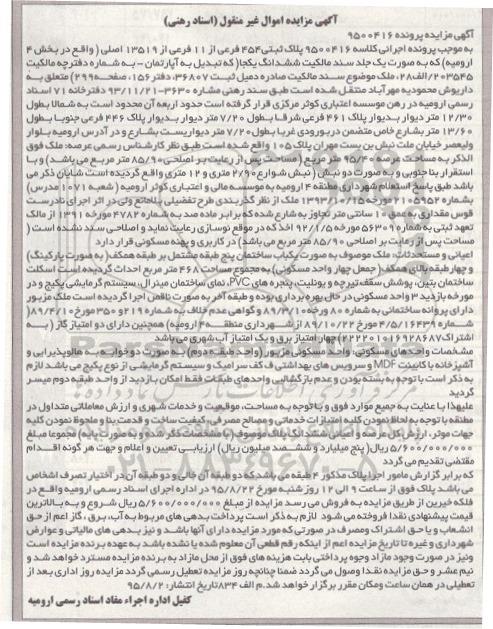 آگهی مزایده اموال غیر منقول (اسناد رهنی)
آگهی مزایده پرونده ۹۵۰۰۴۱۶
به موجب پرونده اجرائی کلاسه ۹۵۰۰۴۱۶ پلاک ثبتی ۴۵۴ فرعی از ۱۱ فرعی از ۱۳۵۱۹ اصلی ( واقع در بخش ۴
ارومیه) که به صورت یک جلد سند مالکیت ششدانگ یکجا( که تبدیل به آپارتمان – به شماره دفترچه مالکیت
۲۰۳۵۴۵/الف۲۸، ملک موضوع سند مالکیت صادره ذیل ثبت ۳۶۸۰۷، دفتر ۱۵۶، صفحه ۲۹۹) متعلق به
داریوش محمودیه مهرآباد منتقل شده است طبق سند رهنی مشاره ۳۶۳۰–۹۳/۱۱/۲۱ دفترخانه ۷۱ اسناد
رسمی ارومیه در رهن موسسه اعتباری کوثر مرکزی قرار گرفته است حدود اربعه آن محدود است به شمالا بطول
۱۲/۳۰ متر دیوار بدیوار پلاک ۴۶۱ فرعی شرقا بطول ۷/۲۰ متر دیوار بدیوار پلاک ۴۴۶ فرعی جنوبا بطول
۱۳/۶۰ متر بشارع خاص متضمن دربورودی غربا بطول ۷/۲۰ متر دیواریست بشارع و در آدرس ارومیه بلوار
ولیعصر خیابان ملت نبش بن بست مهران پلاک ۱۰۵ واقع شده است طبق نظر کارشناس رسمی عرصه: ملک فوق
الذکر به مساحت عرصه ۹۵/۴۰ متر مربع ( مساحت پس از رعایت بر اصلاحی ۸۵/۹۰ متر مربع می باشد) و با
استقرار بنا جنوبی و به صورت دو نبش ( نبش شوارع ۲/۹۰ متری و ۱۲ متری واقع گردیده است شایان ذکر می
باشد طبق پاسخ استعلام شهرداری منطقه ۴ ارومیه به موسسه مالی و اعتباری کوثر ارومیه ( شعبه ۱۰۷۱ مدرس)
بشماره ۲۱۰۵۹۵۲ مورخه ۱۳۹۳/۱۰/۱۵ ملک از نظر گذربندی طرح تفضیلی بلامانع ولی در اثر اجرای نادرست
قوس مقداری به عمق ۱۰ سانتی متر تجاوز به شارع شده که برابر ماده صد به شماره ۴۷۸۲ مورخه ۱۳۹۱ از مالک
تعهد ثبتی به شماره ۵۶۳۰۹ مورخه ۹۲/۸/۵ اخذ که در موقع نوسازی رعایت نماید و اصلاحی سند نشده است (
مساحت پس از رعایت بر اصلاحی ۸۵/۹۰ متر مربع می باشد) در کاربری و پهنه مسکونی قرار دارد
اعیانی و مستحدثات: ملک موصوف به صورت یکباب ساختمان پنج طبقه مشتمل بر طبقه همکف( به صورت پارکینگ)
و چهار طبقه بالای همکف (جمعا چهار واحد مسکونی) به مجموع مساحت ۴۶۸ متر مربع احداث گردیده است اسکلت
ساختمان بتین، پوشش سقف تیرچه و یونلیت، پنجره های PVC، نمای ساختمان مینرال، سیستم گرمایشی پکیج و در
مورخه بازدید ۳ واحد مسکونی در حال بهره برداری بوده و طبقه آخر به صورت ناقص اجرا گردیده است ملک مزبور
دارای پروانه ساختمانی به شماره ۸۰ مورخه ۸۹/۳/۱۰ و گواهی عدم خلاف به شماره ۲۱۹ و ۳۵۰ مورخه ۸۹/۴/۱۰ (
شماره ۴/۵/۱۶۴۳۹ مورخه ۸۹/۱۰/۲۲ از شهرداری منطقه ۴ ارومیه) همچنین دارای دو امتیاز گاز ( به
شماره اشتراک ۲۲۲۲۰۱۱۶۹۲۸۶۸۷)چهار امتیاز برق و یک امتیاز آب شهری می باشد
مشخصات واحدهای مسکونی: واحد مسکونی مزبور (واحد طبقه دوم) به صورت دو خوابه، به هالوپذیرایی و
آشپزخانه با کابینت MDF و سرویس های بهداشتی ف کف سرامیک و سیستم گرمایشی از نوع پکیج می باشد لازم
به ذکر است با توجه به بسته بودن و عدم بازگشایی واحدهای طبقات فقط امکان بازدید از واحد طبقه دوم میسر
گردید
علیهذا با عنایت به جمیع موارد فوق و با توجه به مساحت، موقعیت و خدمات شهری و ارزش معاملاتی متداول در
منطقه با توجه به لحاظ نمودن کلیه امتیازات خدماتی و مصالح مصرفی، کیفیت ساخت و قدمت بنا و ملحوظ نمودن کلیه
جهات موثر، ارزش کل عرصه و اعیانی ششدانگ پلاک موصوف (با مشخصات ذکر شده و به صورت پایه) مجموعا مبلغ
۵/۶۰۰/۰۰۰/۰۰۰ ریال( پنج میلیارد و ششصد میلیون ریال) ارزیابی تعیین و اعلام و جهت هر گونه اقدام
مقتضی تقدیم می گردد
که برابر گزارش مامور اجرا پلاک مذکور ۴ طبقه می باشد که دو طبقه آن خالی و دو طبقه آن در اختیار تصرف اشخاص
می باشد پلاک فوق از ساعت ۹ الی ۱۲ روز شنبه مورخ ۹۵/۸/۲۲ در اداره اجرای اسناد رسمی ارومیه واقع در
فلکه خیرین از طریق مزایده به فروش می رسد مزایده از مبلغ ۵/۶۰۰/۰۰۰/۰۰۰ ریال شروع و به بالاترین
قیمت پیشنهادی نقدا فروخته می شود لازم به ذکر است پرداخت بدهی های مربوط به آب، برق، گاز اعم از حق
انشعاب و یا حق اشتراک ومصرف در صورتی که مورد مزایده دارای آنها باشد و نیز بدهی های مالیاتی و عوارض
شهرداری و غیره تا تاریخ مزایده اعم از اینکه رقم قطعی آن معلوم شده یا نشده باشد به عهده برنده مزایده است
ونیز در صورت وجود مازاد وجوه پرداختی بابت هزینه های فوق از محل مازاد به برنده مزایده مسترد خواهد شد و
نیم عشر و حق مزایده نقدا وصول می گردد ضمنا چنانچه روز مزایده تعطیل رسمی گردد مزایده روز اداری بعد از
تعطیلی در همان ساعت ومکان مقرر برگزار خواهد شد. م الف ۸۳۴تاریخ انتشار: ۹۵/۸/۲
کفیل اداره اجراء مفاد اسناد رسمی ارومیه